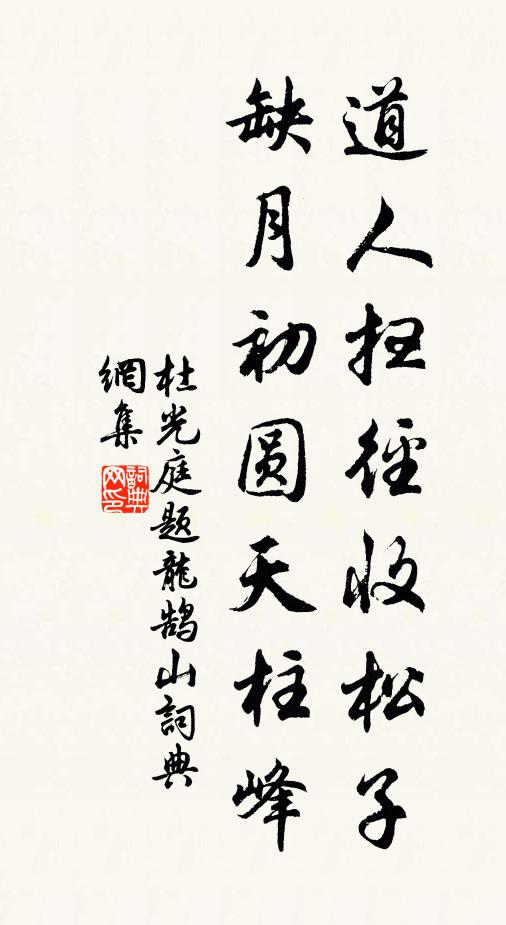 道人扫径收松子
缺月初圆天柱峰
杜光庭题龍鹄山詞典
網集
詞典
网印